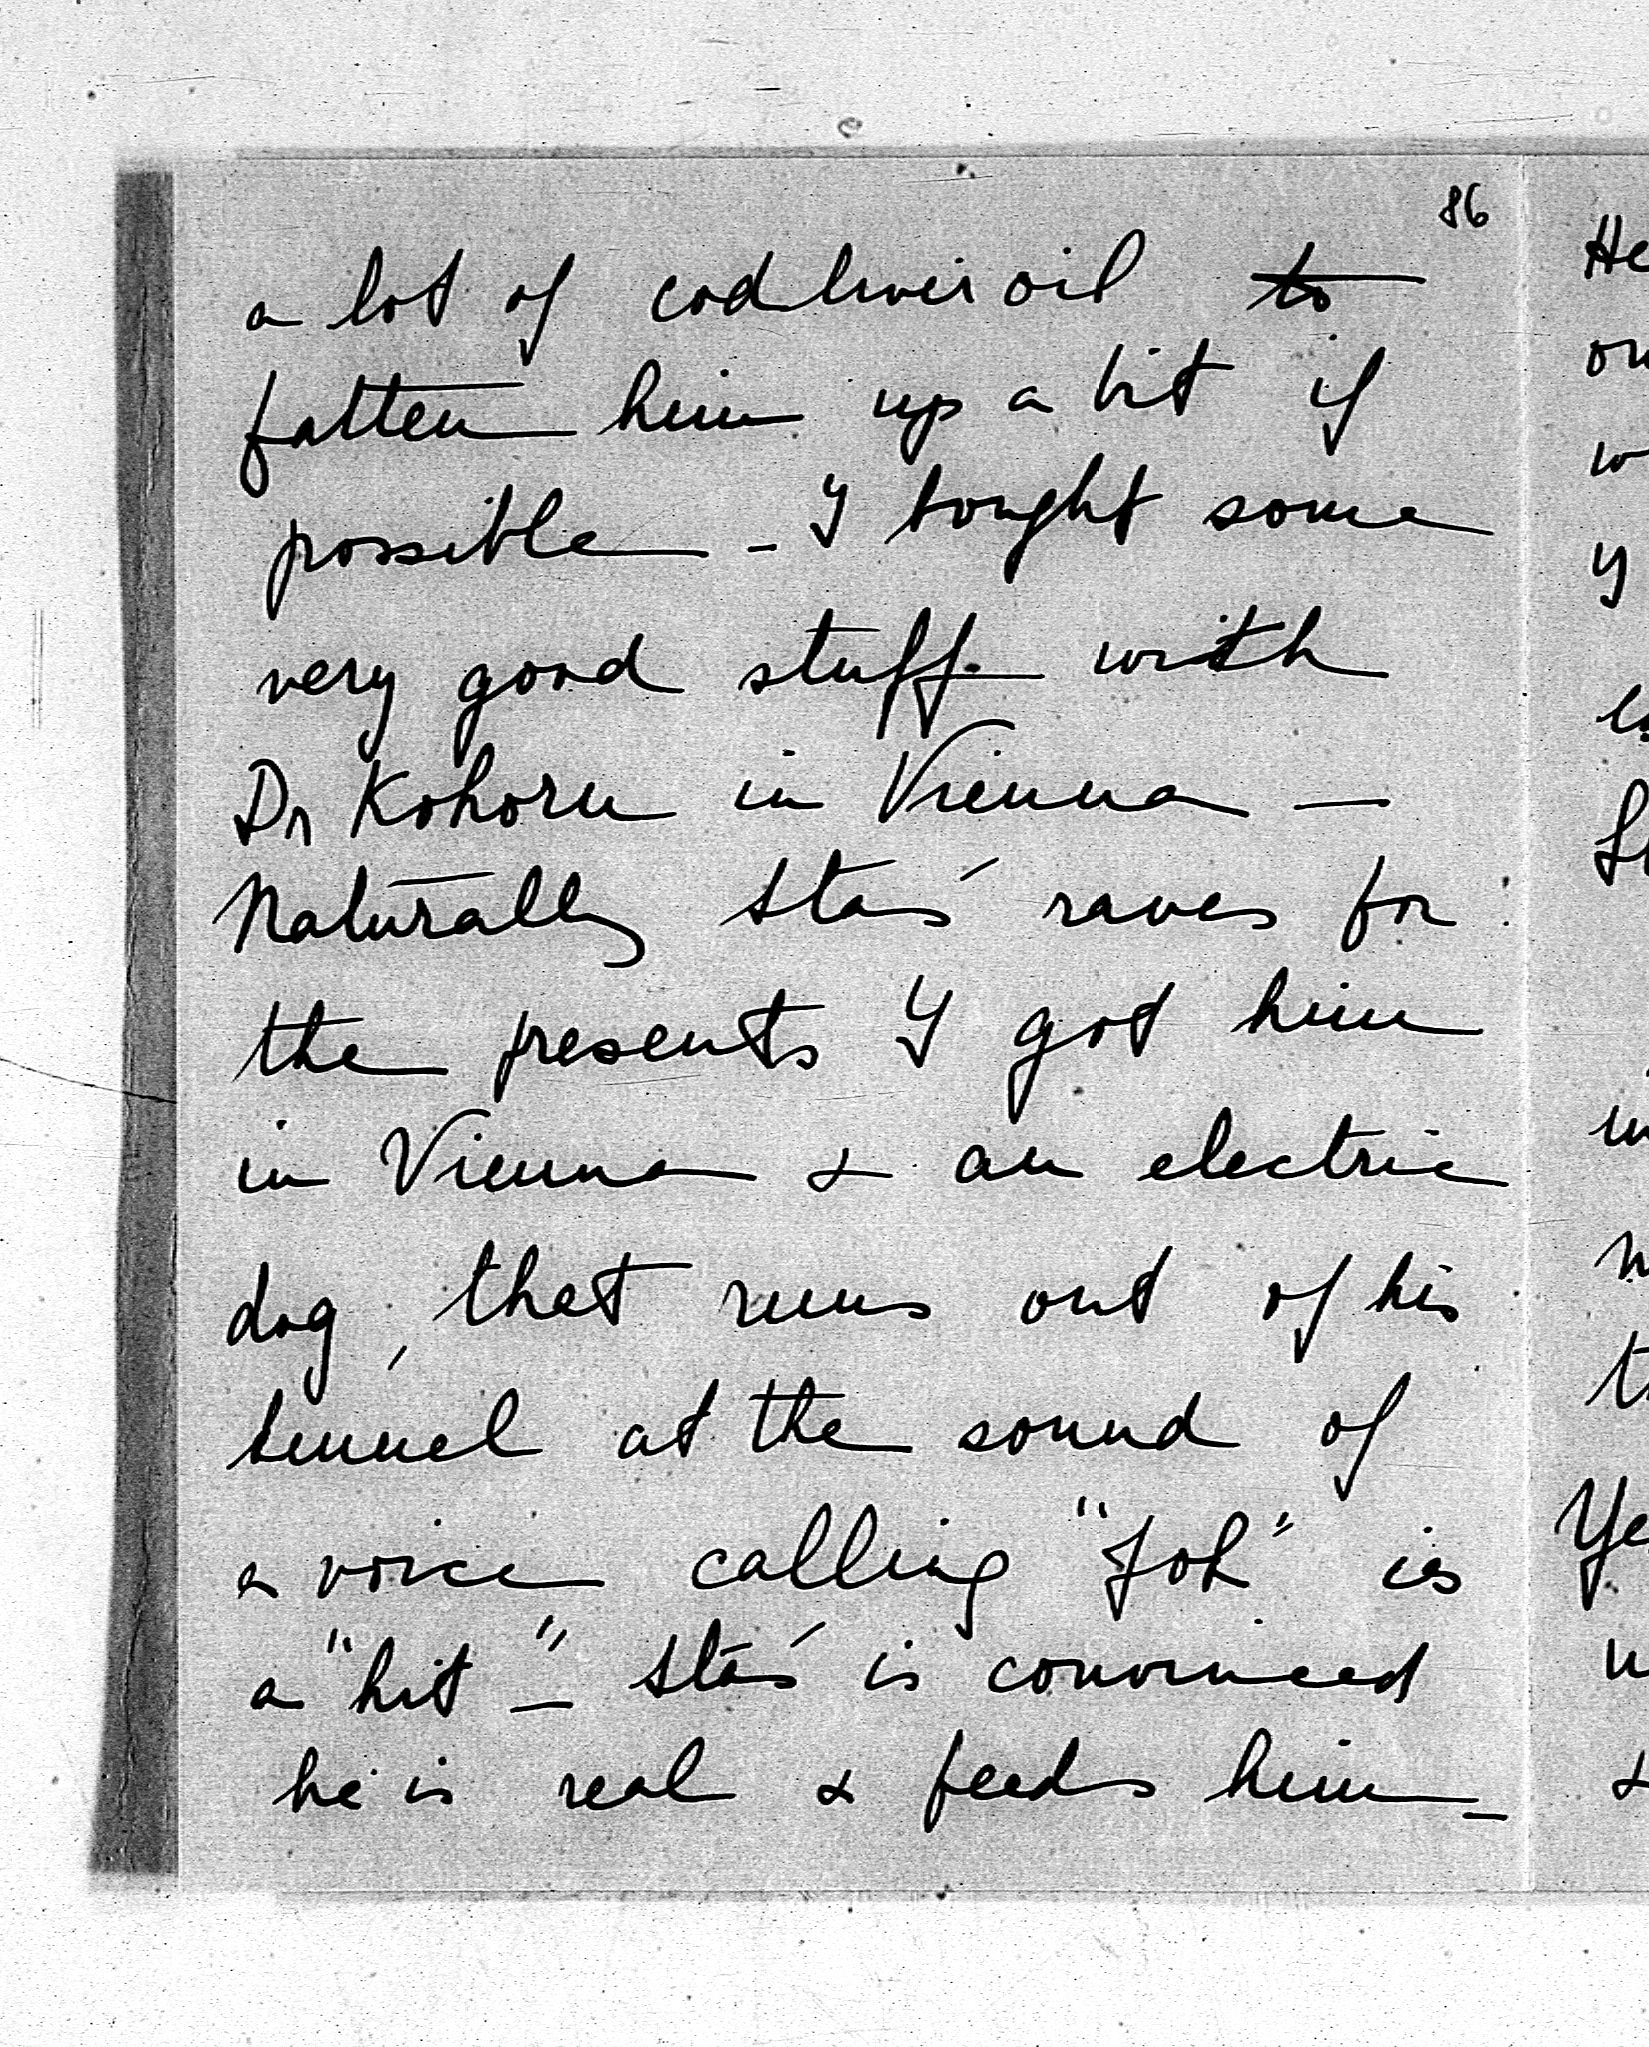 86
a lot of codliver oil to
fatten him up a bit if
possible - I bought some
very good stuff with
Dr Kohorn in Vienna —
Naturally Staś raves for
the presents I got him
in Vienna & an electric
dog, that runs out of his
tunnel at the sound of
a voice calling "Joh" is
a "hit" - Staś is convinced
he is real & feeds him -
He
on
w
y
in
Ye
&